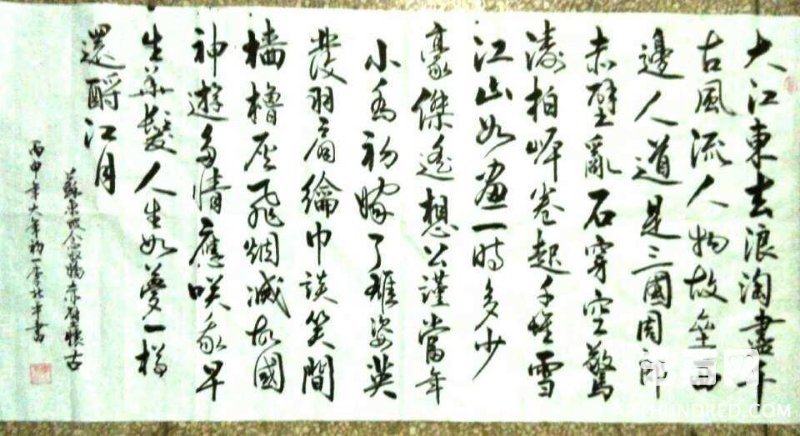 大江東去浪淘盡千
古風流人物故壘西
邊人道是三國周郎
赤壁亂石穿空驚
濤拍岸卷起千堆雪
江山如畫一時多少
豪傑遙想公謹當年
小喬初嫁了雄姿英
發羽扇綸巾談笑間
檣櫓灰飛烟滅故國
神遊多情應咲我早
生華髮人生如夢一樽
還酹江月
蘇東坡念奴嬌赤壁懷古
丙申年大年初一李書
HUNDRED.COM